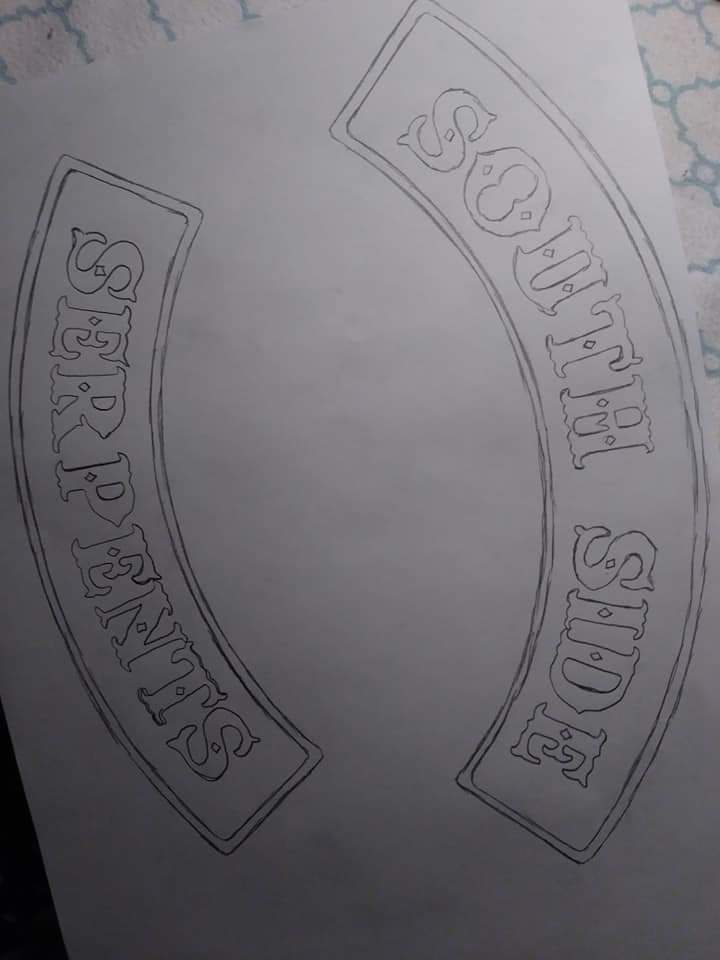 SOUTH SIDE
SERPENTS